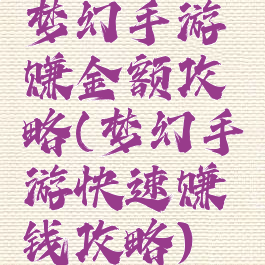 梦幻手游
赚金额攻
略(梦幻手
游快速赚
钱攻略)